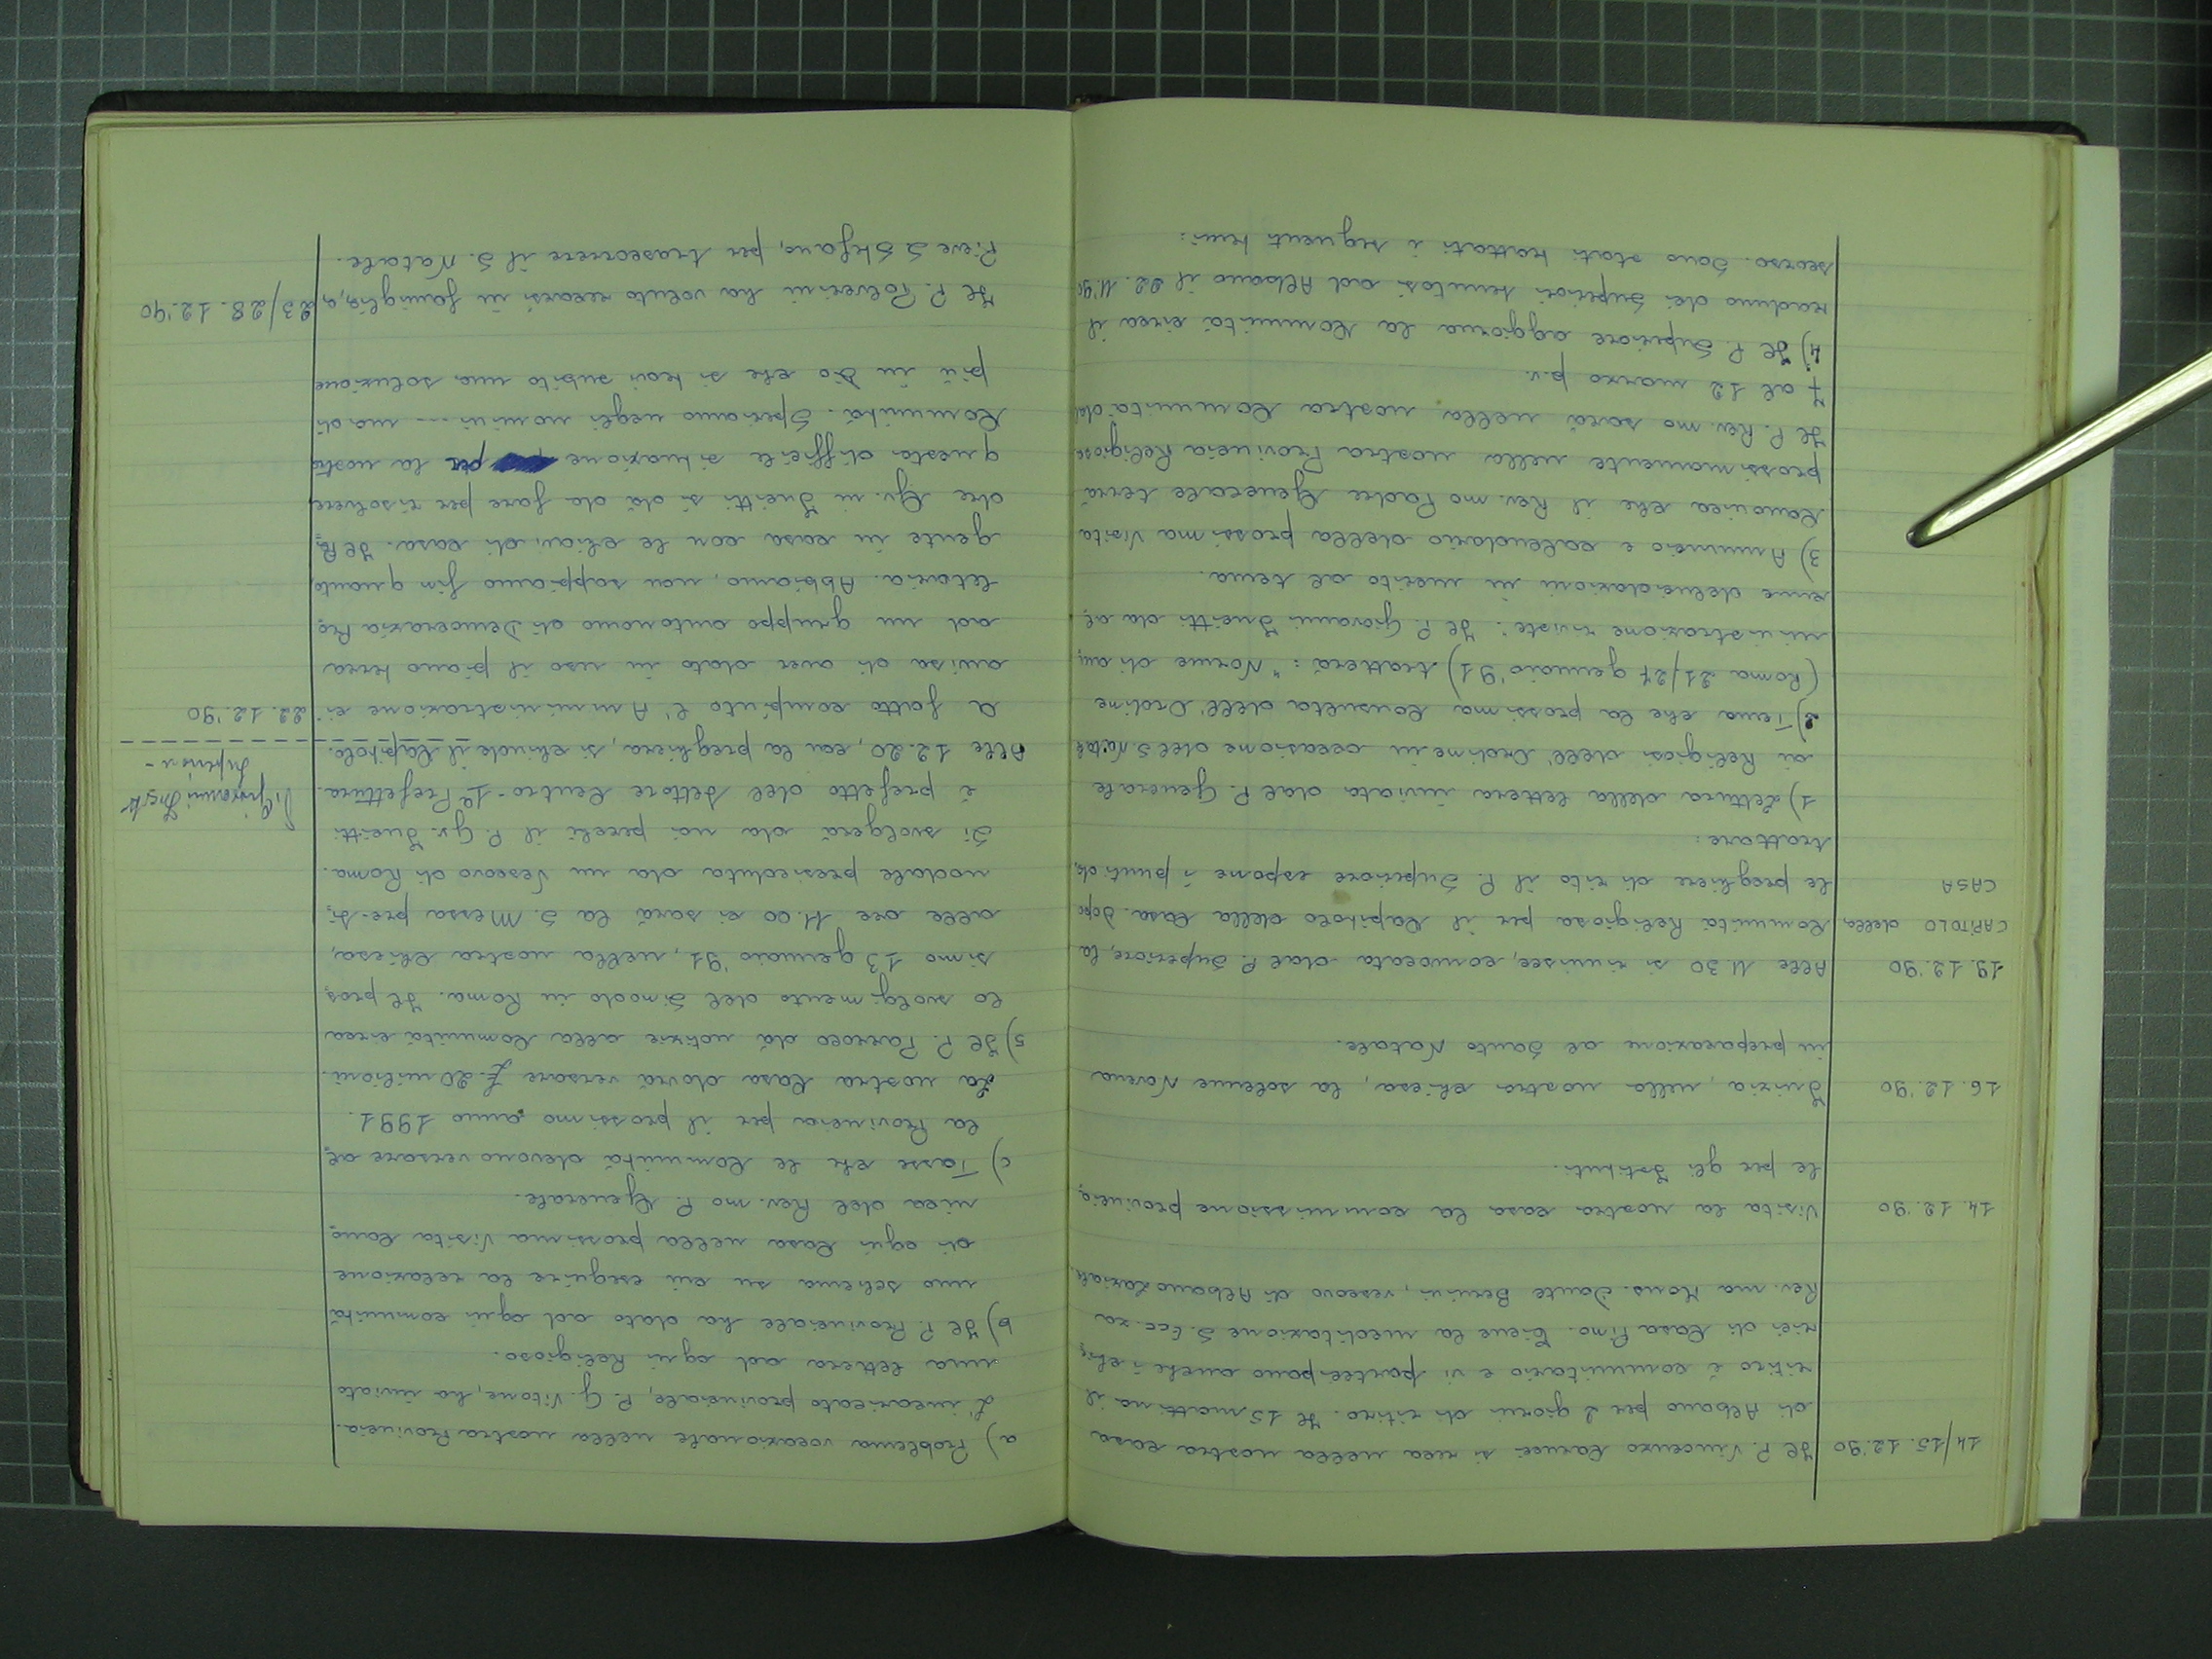 14/15.12.'90 Il P. Vincenzo Carucci si reca nella nostra casa
di Albano per 2 giorni di ritiro. Il 15 mattina il
ritiro è comunitario e vi partecipano anche i chie
rici di Casa Pimo. Tiene la meditazione S. Ecc.za
Rev.ma Mons. Dante Bernini, vescovo di Albano Laziale.
14.12.'90 Visita la nostra casa la commissione provincia
le per gli Istituti.
16.12.'90 Inizia, nella nostra chiesa, la solenne Novena
in preparazione al Santo Natale.
19.12.'90 Alle 11.30 si riunisce, convocata dal P. Superiore, la
CAPITOLO della Comunità Religiosa per il Capitolo della Casa. Dopo
CASA le preghiere di rito il P. Superiore espone i punti da
trattare:
1) Lettura della lettera inviata dal P. Generale
ai Religiosi dell'Ordine in occasione del S. Natale
2) Tema che la prossima Consulta dell'Ordine
(Roma 21/27 gennaio '91) tratterà: "Norme di am
ministrazione riviste". Il P. Giovanni Incitti dà al
cune delucidazioni in merito al tema.
3) Annuncio e calendario della prossima Visita
Canonica che il Rev.mo Padre Generale terrà
prossimamente nella nostra Provincia Religiosa
Il P. Rev.mo sarà nella nostra Comunità dal
7 al 12 marzo p.v.
4) Il P. Superiore aggiorna la Comunità circa il
raduno dei Superiori tenutosi ad Albano il 22.11'90
scorso. Sono stati trattati i seguenti temi:
a) Problema vocazionale nella nostra Provincia.
L'incaricato provinciale, P. G. Vitone, ha inviato
una lettera ad ogni Religioso.
b) Il P. Provinciale ha dato ad ogni comunità
uno schema su cui eseguire la relazione
di ogni Casa nella prossima Visita Cano
nica del Rev.mo P. Generale.
c) Tasse che le Comunità devono versare al
la Provincia per il prossimo anno 1991.
La nostra Casa dovrà versare £. 20 milioni.
5) Il P. Parroco dà notizie alla Comunità circa
lo svolgimento del Sinodo in Roma. Il pros
simo 13 gennaio '91, nella nostra chiesa,
alle ore 11.00 ci sarà la S. Messa pre-si
nodale presieduta da un Vescovo di Roma.
Si svolgerà da noi perchè il P. Gv. Incitti
è prefetto del Settore Centro - 1ª Prefettura.
Alle 12.20, con la preghiera, si chiude il Capitolo.
P. Giovanni Incitti
Superiore -
22.12.'90 A fatto compiuto l'Amministrazione ci
avvisa di aver dato in uso il piano terra
ad un gruppo autonomo di Democrazia Pro
letaria. Abbiamo, non sappiamo fin quando,
gente in casa con le chiavi di casa. Il Pa
dre Gv.ni Incitti si dà da fare per risolvere
questa difficile situazione per la nostra
Comunità. Speriamo negli uomini... ma di
più in Dio che si trovi subito una soluzione
23/28.12.'90 Il P. Polverini ha voluto recarsi in famiglia, a
Pieve S. Stefano, per trascorrere il S. Natale.